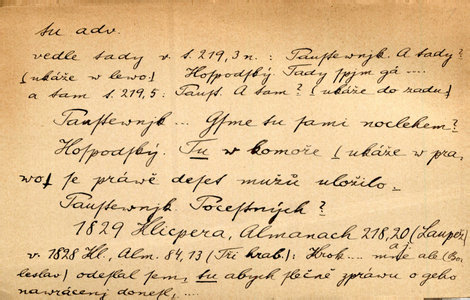 tu adv.
vedle tady v s. 219, 3 n. : Paustewnjk. A tady?
[ukáže w lewo] Hospodský. Tady spjm gá ....
a tam s. 219, 5 : Paust. A tam? [ukáže do zadu]
Paustewnjk ... Gsme tu sami noclehem?
Hospodský. Tu w komoře [ukáže w pra-
wo] se práwě deset mužů uložilo.
Paustewnjk Pocestných?
1829 Klicpera, Almanach 218, 20 (Laupež)
v. 1828 Kl., Alm. 84, 13 (Tři hrab.): Hrok .... mne ale (Bo-
leslav) odeslal sem, tu abych slečně zprávu o geho
navrácenj donesl, ....